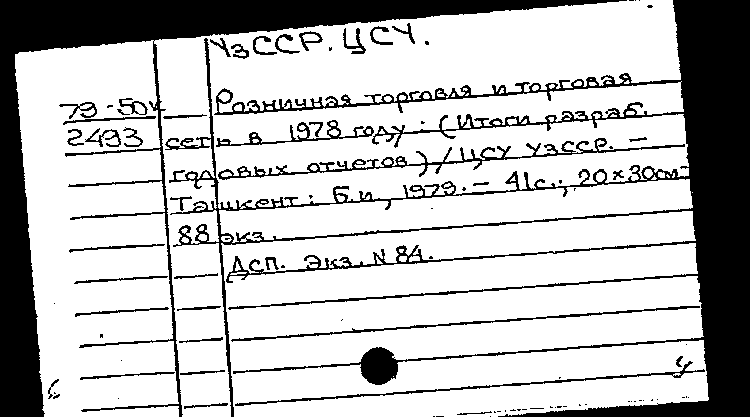 УзССР. ЦСУ.
79-50к Розничная торговля и торговая
2493 сеть в 1978 году: (Итоги разраб.
годовых отчетов) / ЦСУ УзССР. –
Ташкент: Б.и, 1979. – 41с.; 20×30см –
88 экз.
ДСП. Экз. N 84.
У